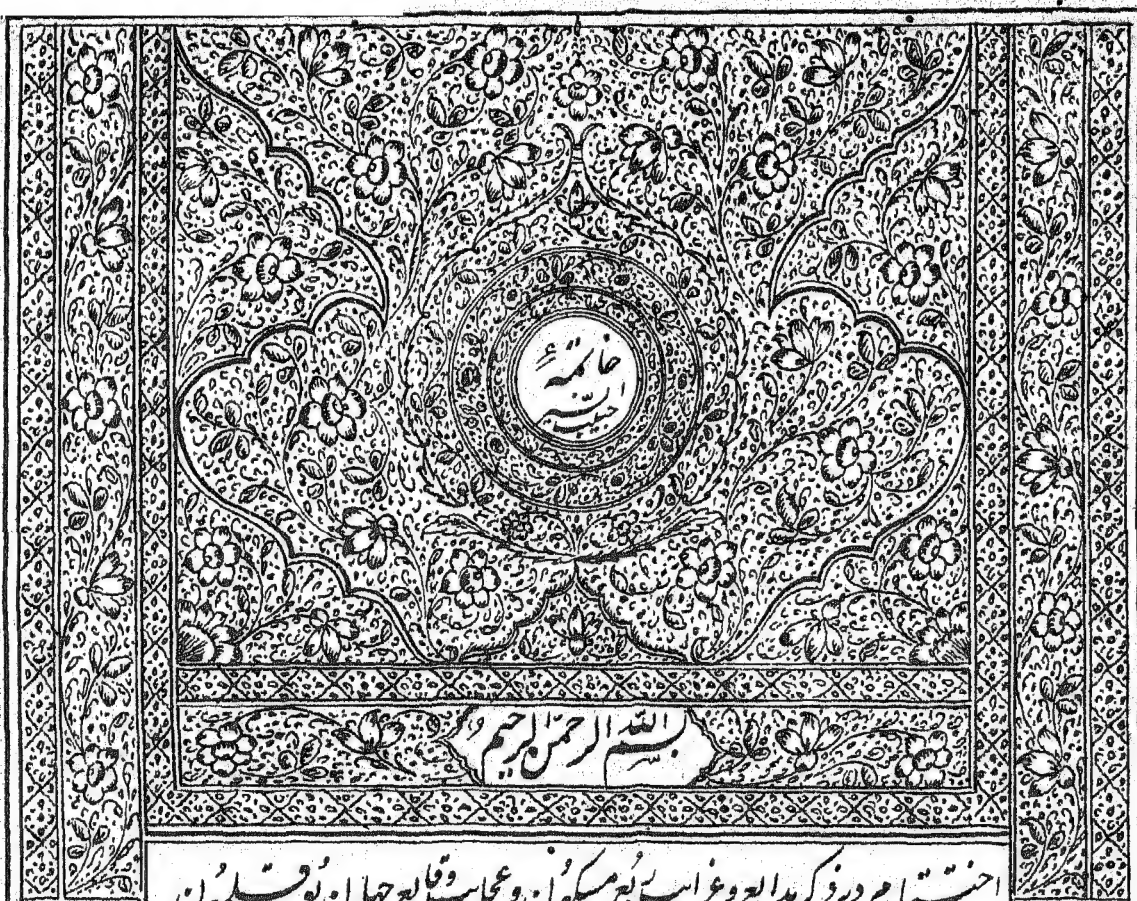 خاتمهٔ
حبیب السیر
بسم الله الرحمن الرحیم
اختتام در ذکر بدایع و غرایب ربع مسکون و عجایب وقایع جهان بوقلمون